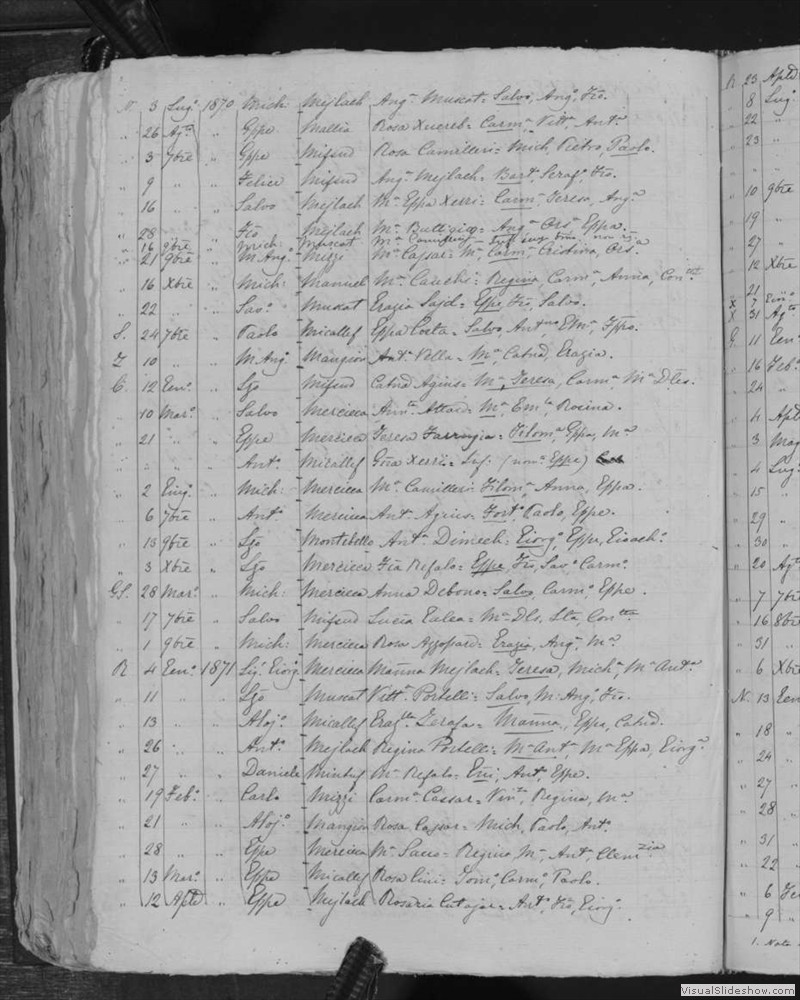 N. 3 Lug.o 1870 Mich: Mejlach Ang.a Muscat = Salvo, Ang.o, Fro.
" 26 Ag.o " Gppe Mallia Rosa Xuereb = Carm.a, Vitt.a, Ant.a
" 3 7bre " Gppe Mifsud Rosa Camilleri = Mich, Pietro, Paolo.
" 9 " " Felice Mifsud Ang.a Mejlach = Bart. Seraf. Fro.
" 16 " " Salvo Mejlach M.a Gppa Xerri = Carm.a Teresa, Ang.a
" 28 " " Fro Mejlach M.a Buttigieg = Ang.a Ors.a Gppa.
" 16 9bre " Mich: Muscat M.a
" 21 9bre " M. Ang.o Mizzi M.a Cassar = M.a Carm. Cristina, Ors.a
" 16 Xbre " Mich: Manuel M.a Cauchi = Regina, Carm.a, Anna, Con.tta
" 22 " " Sav.o Muscat Grazia Sajd = Gppe, Fro, Salvo.
S. 24 7bre " Paolo Micallef Gppa Costa = Salvo, Ant.no
Z 10 " " M. Ang.o Mangion Ant.a Vella = M.a Catnd Grazia.
C. 12 Gen.o " Lzo Mifsud Catnd Agius = M.a Teresa, Carm.a M.a Dls.
" 10 Mar.o " Salvo Mercieca Ann.a Attard = M.a Em.la Rosina.
" 21 " " Gppe Mercieca Teresa Farrugia = Filom.a Gppa, M.a
" " " " Ant.o Micallef Gna Xerri = Lug. (nom.o Gppe)
" 2 Giug.o " Mich: Mercieca M.a Camilleri = Filom.a Anna, Gppa.
" 6 7bre " Ant.o Mercieca Ant.a Agius = Fort.o Paolo, Gppe.
" 13 9bre " Lzo Montebello Ant.a Dimech = Giorg.o, Gppe, Gioach.o
" 3 Xbre " Lzo Mercieca Fca Refalo = Gppe, Fro, Sav.o Carm.o
GS. 28 Mar.o " Mich: Mercieca Anna Debono = Salvo, Carm.o, Gppe.
" 17 7bre " Salvo Mifsud Lucia = M.a Dls, Con.tta
" 1 9bre " Mich: Mercieca Rosa Azzopardi = Grazia, Ang.a, M.a
R 4 Gen.o 1871 Lui. Giorg.o Mercieca Marina Mejlach = Teresa, Mich.a, M.a Ant.a
" 11 " " Lzo Muscat Vitt.a Portelli = Salvo, M. Ang.o, Fro.
" 13 " " Aloj.o Micallef Graz.la Zerafa = Marina, Gppa, Catnd.
" 26 " " Ant.o Mejlach Regina Portelli = M.a Ant.a, M.a Gppa, Giorg.a
" 27 " " Daniele Mintuf M.a Refalo = Gni, Ant.o, Gppe.
" 19 Feb.o " Carlo Mizzi Carm.a Cassar = Vin.za, Regina, M.a
" 21 " " Aloj.o Mangion Rosa Cassar = Mich, Paolo, Ant.o
" 28 " " Gppe Mercieca M.a = Regina, M.a, Ant.a Clem.zia
" 13 Mar.o " Gppe Micallef Rosa Cini = Tom.o, Carm.o, Paolo.
" 12 Aple " Gppe Mejlach Rosaria = Ant.o, Fro, Giorg.o
R 23 Aple
" 8 Lug.o
" 22 "
" 23 "
" 10 9bre
" 19 "
" 27 "
" 12 Xbre
" 21
X 7 Gin.o
X 31 Ag.o
G. 11 Gen.
" 16 Feb.o
" 24 "
" 4 Aple
" 3 Mag
" 4 Lug.o
" 15 "
" 29 "
" 30 "
" 20 Ag.o
" 7 7bre
" 16 8bre
" 31 "
" 6 Xbre
N. 13 Gen
" 18 "
" 24 "
" 27 "
" 28 "
" 31 "
" 22 "
" 6 Fe
" 9 "
1. Nota
VisualSlideshow.com